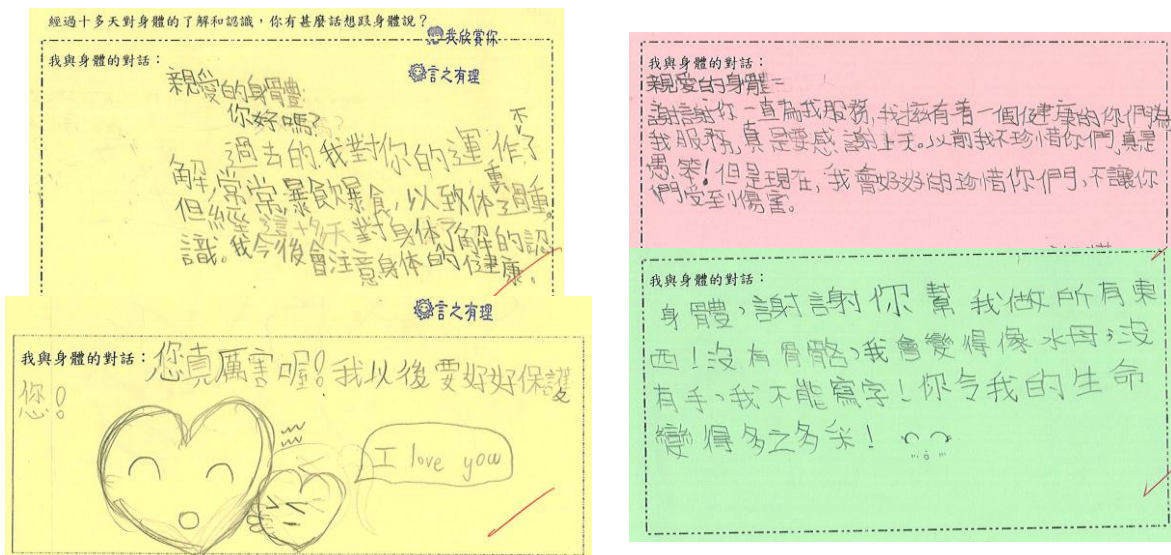 經過十多天對身體的了解和認識，你有甚麼話想跟身體說？
我欣賞你
我與身體的對話：
言之有理
親愛的身體：
你好嗎？
過去的我對你的運作不了
解，常常暴飲暴食，以致体重了過腫。
但經這十多天對身体了解的認
識。我今後會注意身体的健康。
言之有理
我與身體的對話：您真厲害喔！我以後要好好保護
您！
I love you
我與身體的對話：
親愛的身體：
謝謝你一直為我服務，我擁有着一個健康的你們為
我服務，真是要感謝上天。以前我不珍惜你們，真是
愚笨！但是現在，我會好好的珍惜你們，不讓你
們受到傷害。
我與身體的對話：
身體，謝謝你幫我做所有東
西！沒有骨骼，我會變得像水母；沒
有手，我不能寫字！你令我的生命
變得多之多采！